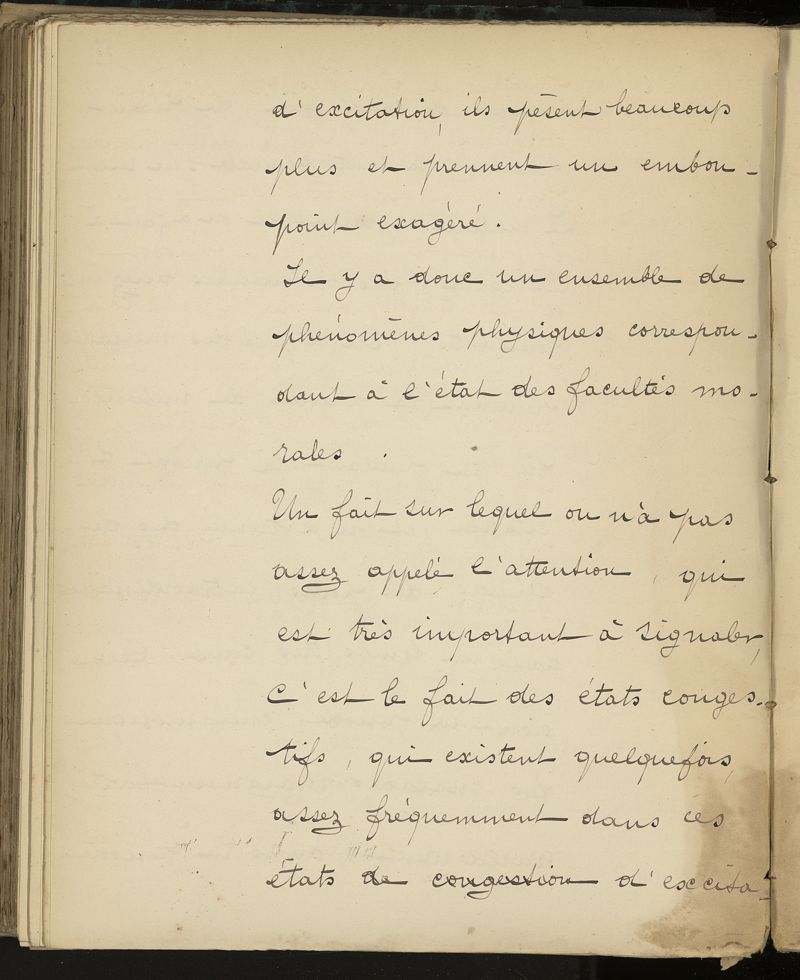 d'excitation, ils pèsent beaucoup
plus et prennent un embon-
point exagéré.
Il y a donc un ensemble de
phénomènes physiques correspon-
dant à l'état des facultés mo-
rales.
Un fait sur lequel on n'a pas
assez appelé l'attention, qui
est très important à signaler,
C'est le fait des états conges-
tifs, qui existent quelquefois,
assez fréquemment dans ces
états de congestion d'excita-